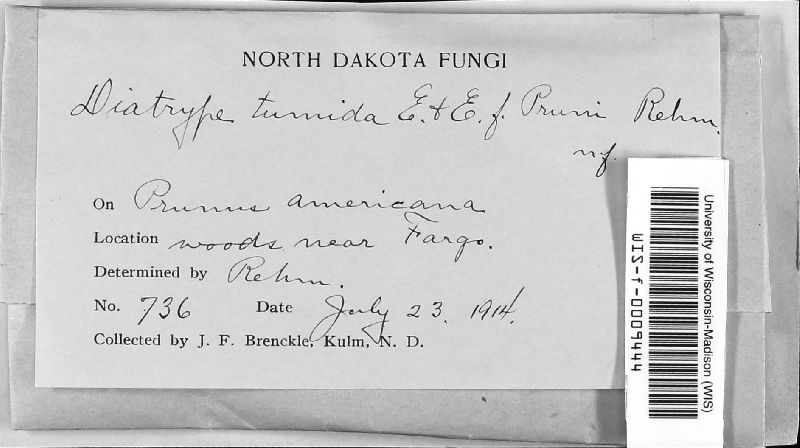 NORTH DAKOTA FUNGI
Diatrype tumida E. & E. f. Pruni Rehm.
n.f.
On Prunus americana
Location woods near Fargo.
Determined by Rehm.
No. 736 Date July 23. 1914.
Collected by J. F. Brenckle, Kulm, N. D.
University of Wisconsin-Madison (WIS)
WIS-f-0009444